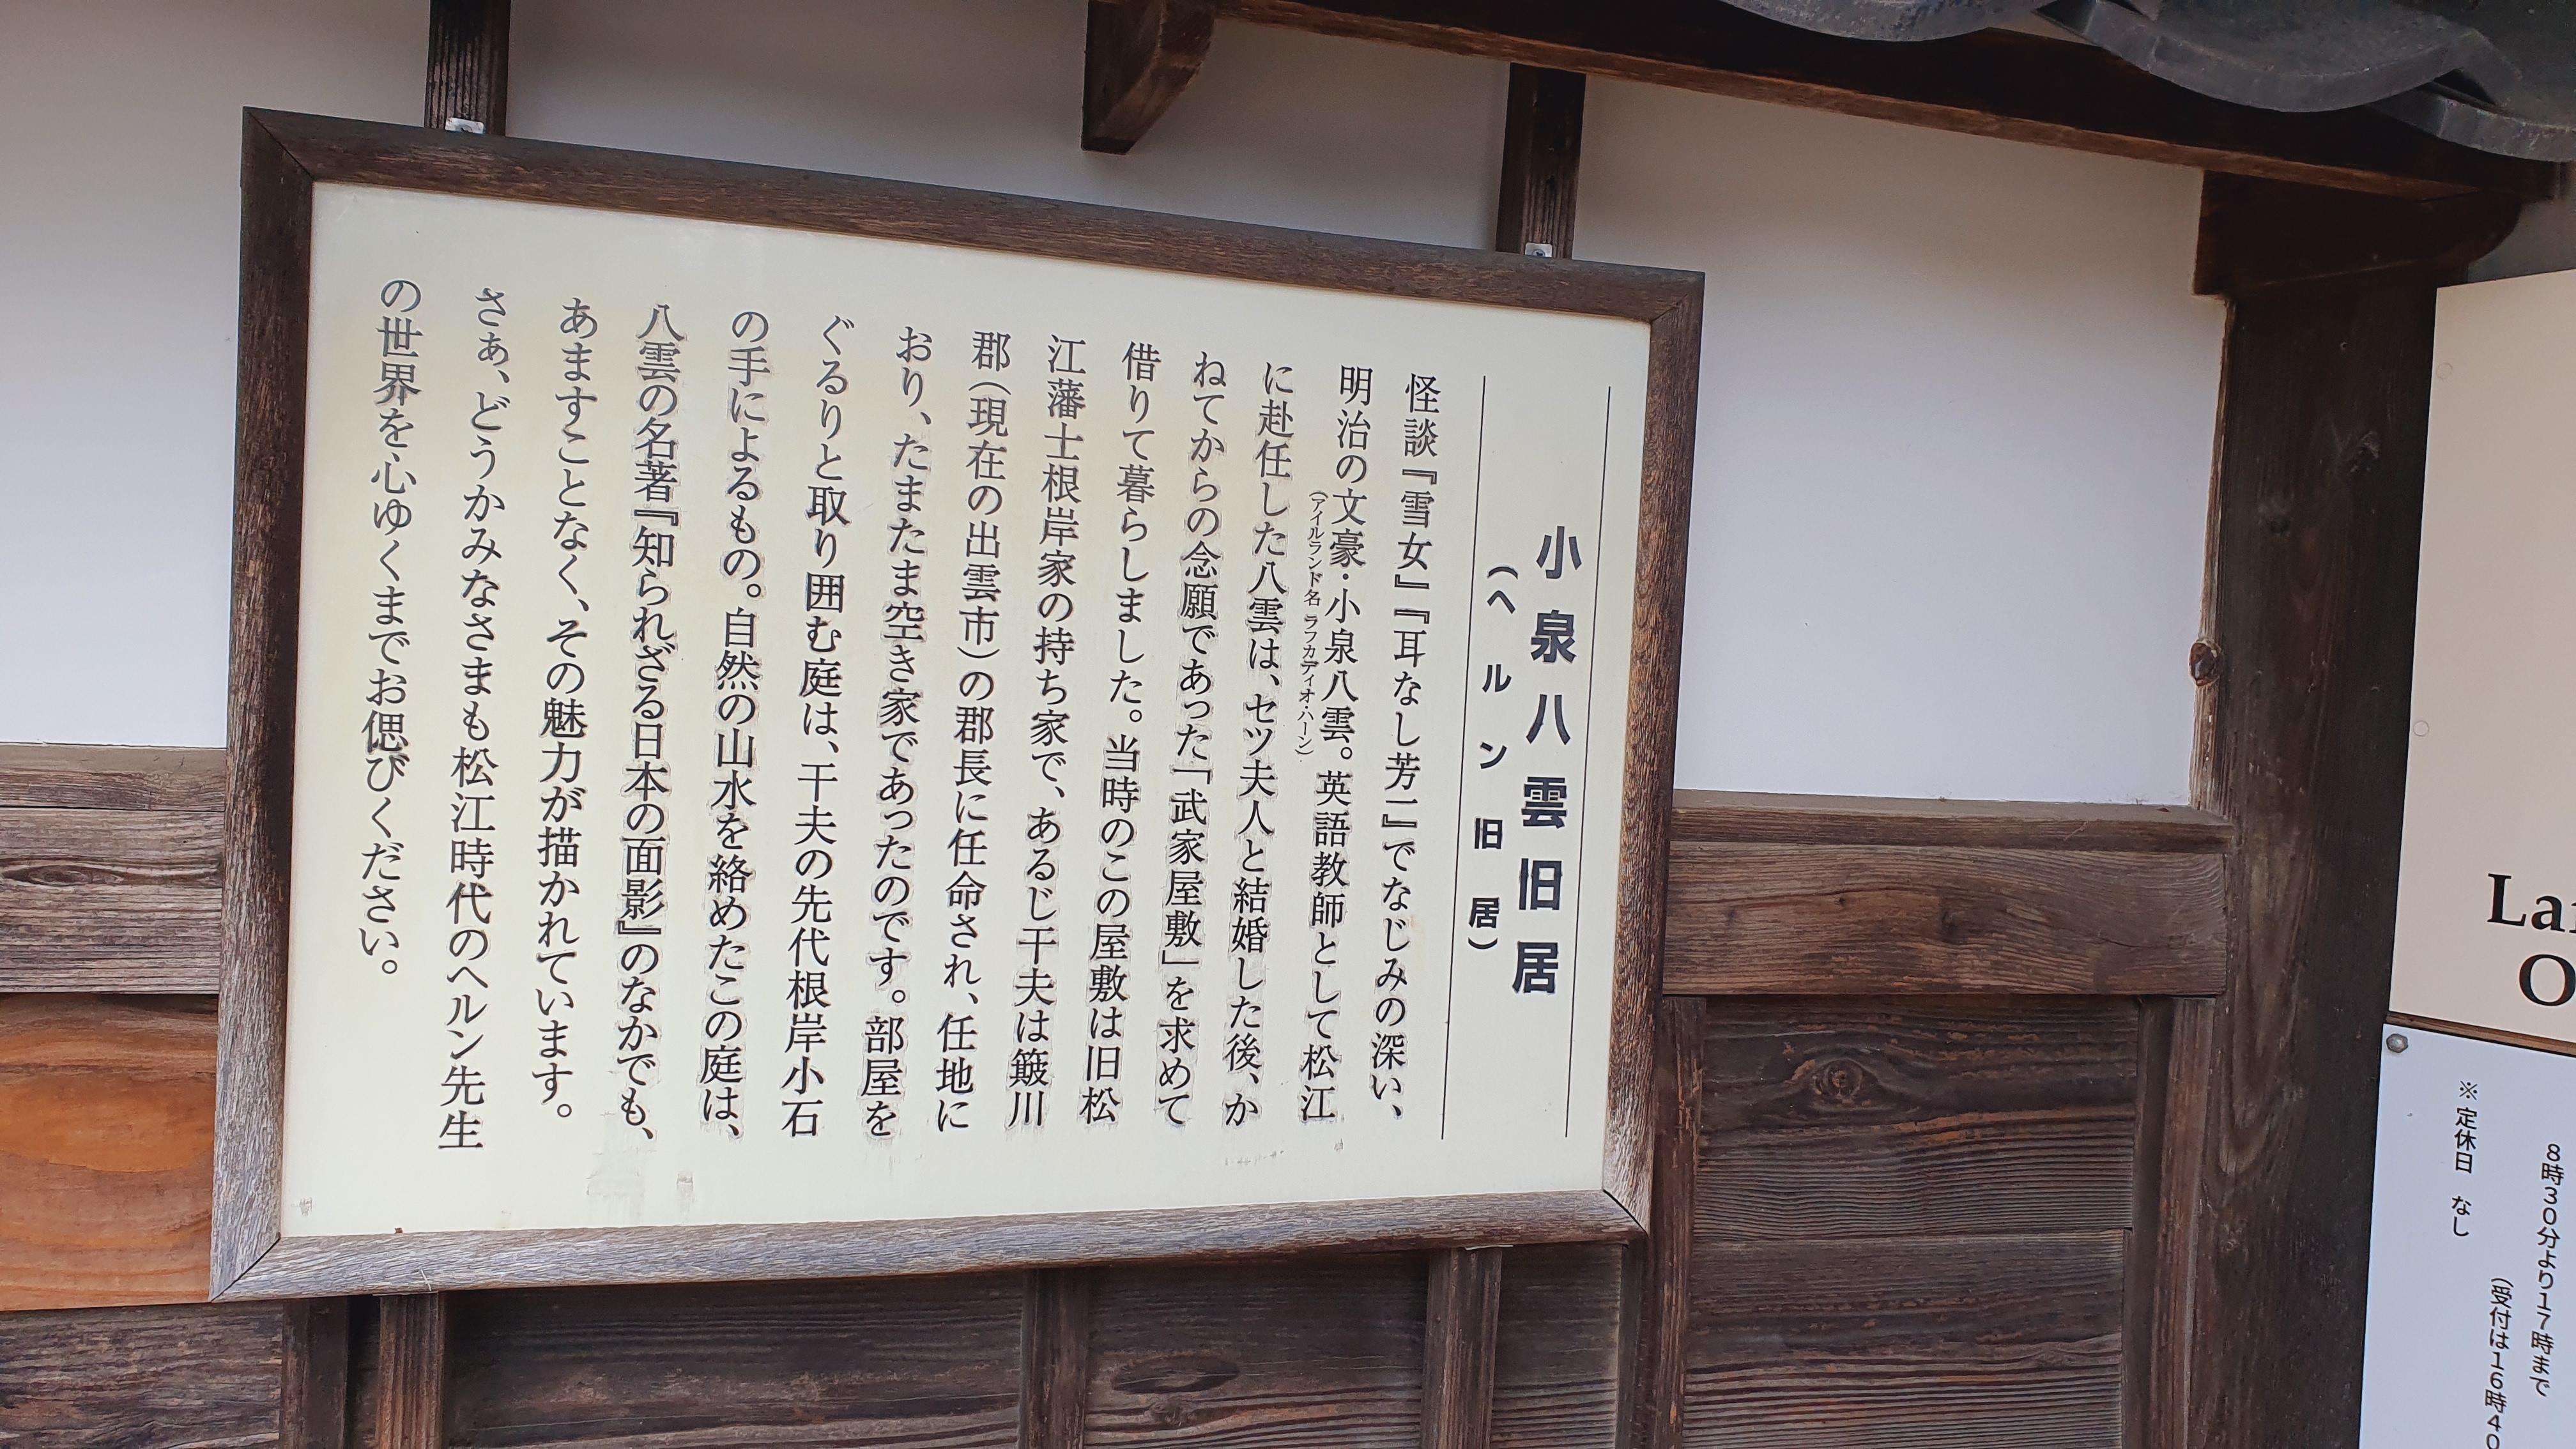 小泉八雲旧居
(ヘルン旧居)
怪談『雪女』『耳なし芳一』でなじみの深い、
明治の文豪・小泉八雲。英語教師として松江
(アイルランド名 ラフカディオ・ハーン)
に赴任した八雲は、セツ夫人と結婚した後、か
ねてからの念願であった「武家屋敷」を求めて
借りて暮らしました。当時のこの屋敷は旧松
江藩士根岸家の持ち家で、あるじ干夫は簸川
郡(現在の出雲市)の郡長に任命され、任地に
おり、たまたま空き家であったのです。部屋を
ぐるりと取り囲む庭は、干夫の先代根岸小石
の手によるもの。自然の山水を絡めたこの庭は、
八雲の名著『知られざる日本の面影』のなかでも、
あますことなく、その魅力が描かれています。
さぁ、どうかみなさまも松江時代のヘルン先生
の世界を心ゆくまでお偲びください。
8時30分より17時まで
(受付は16時40
※定休日 なし